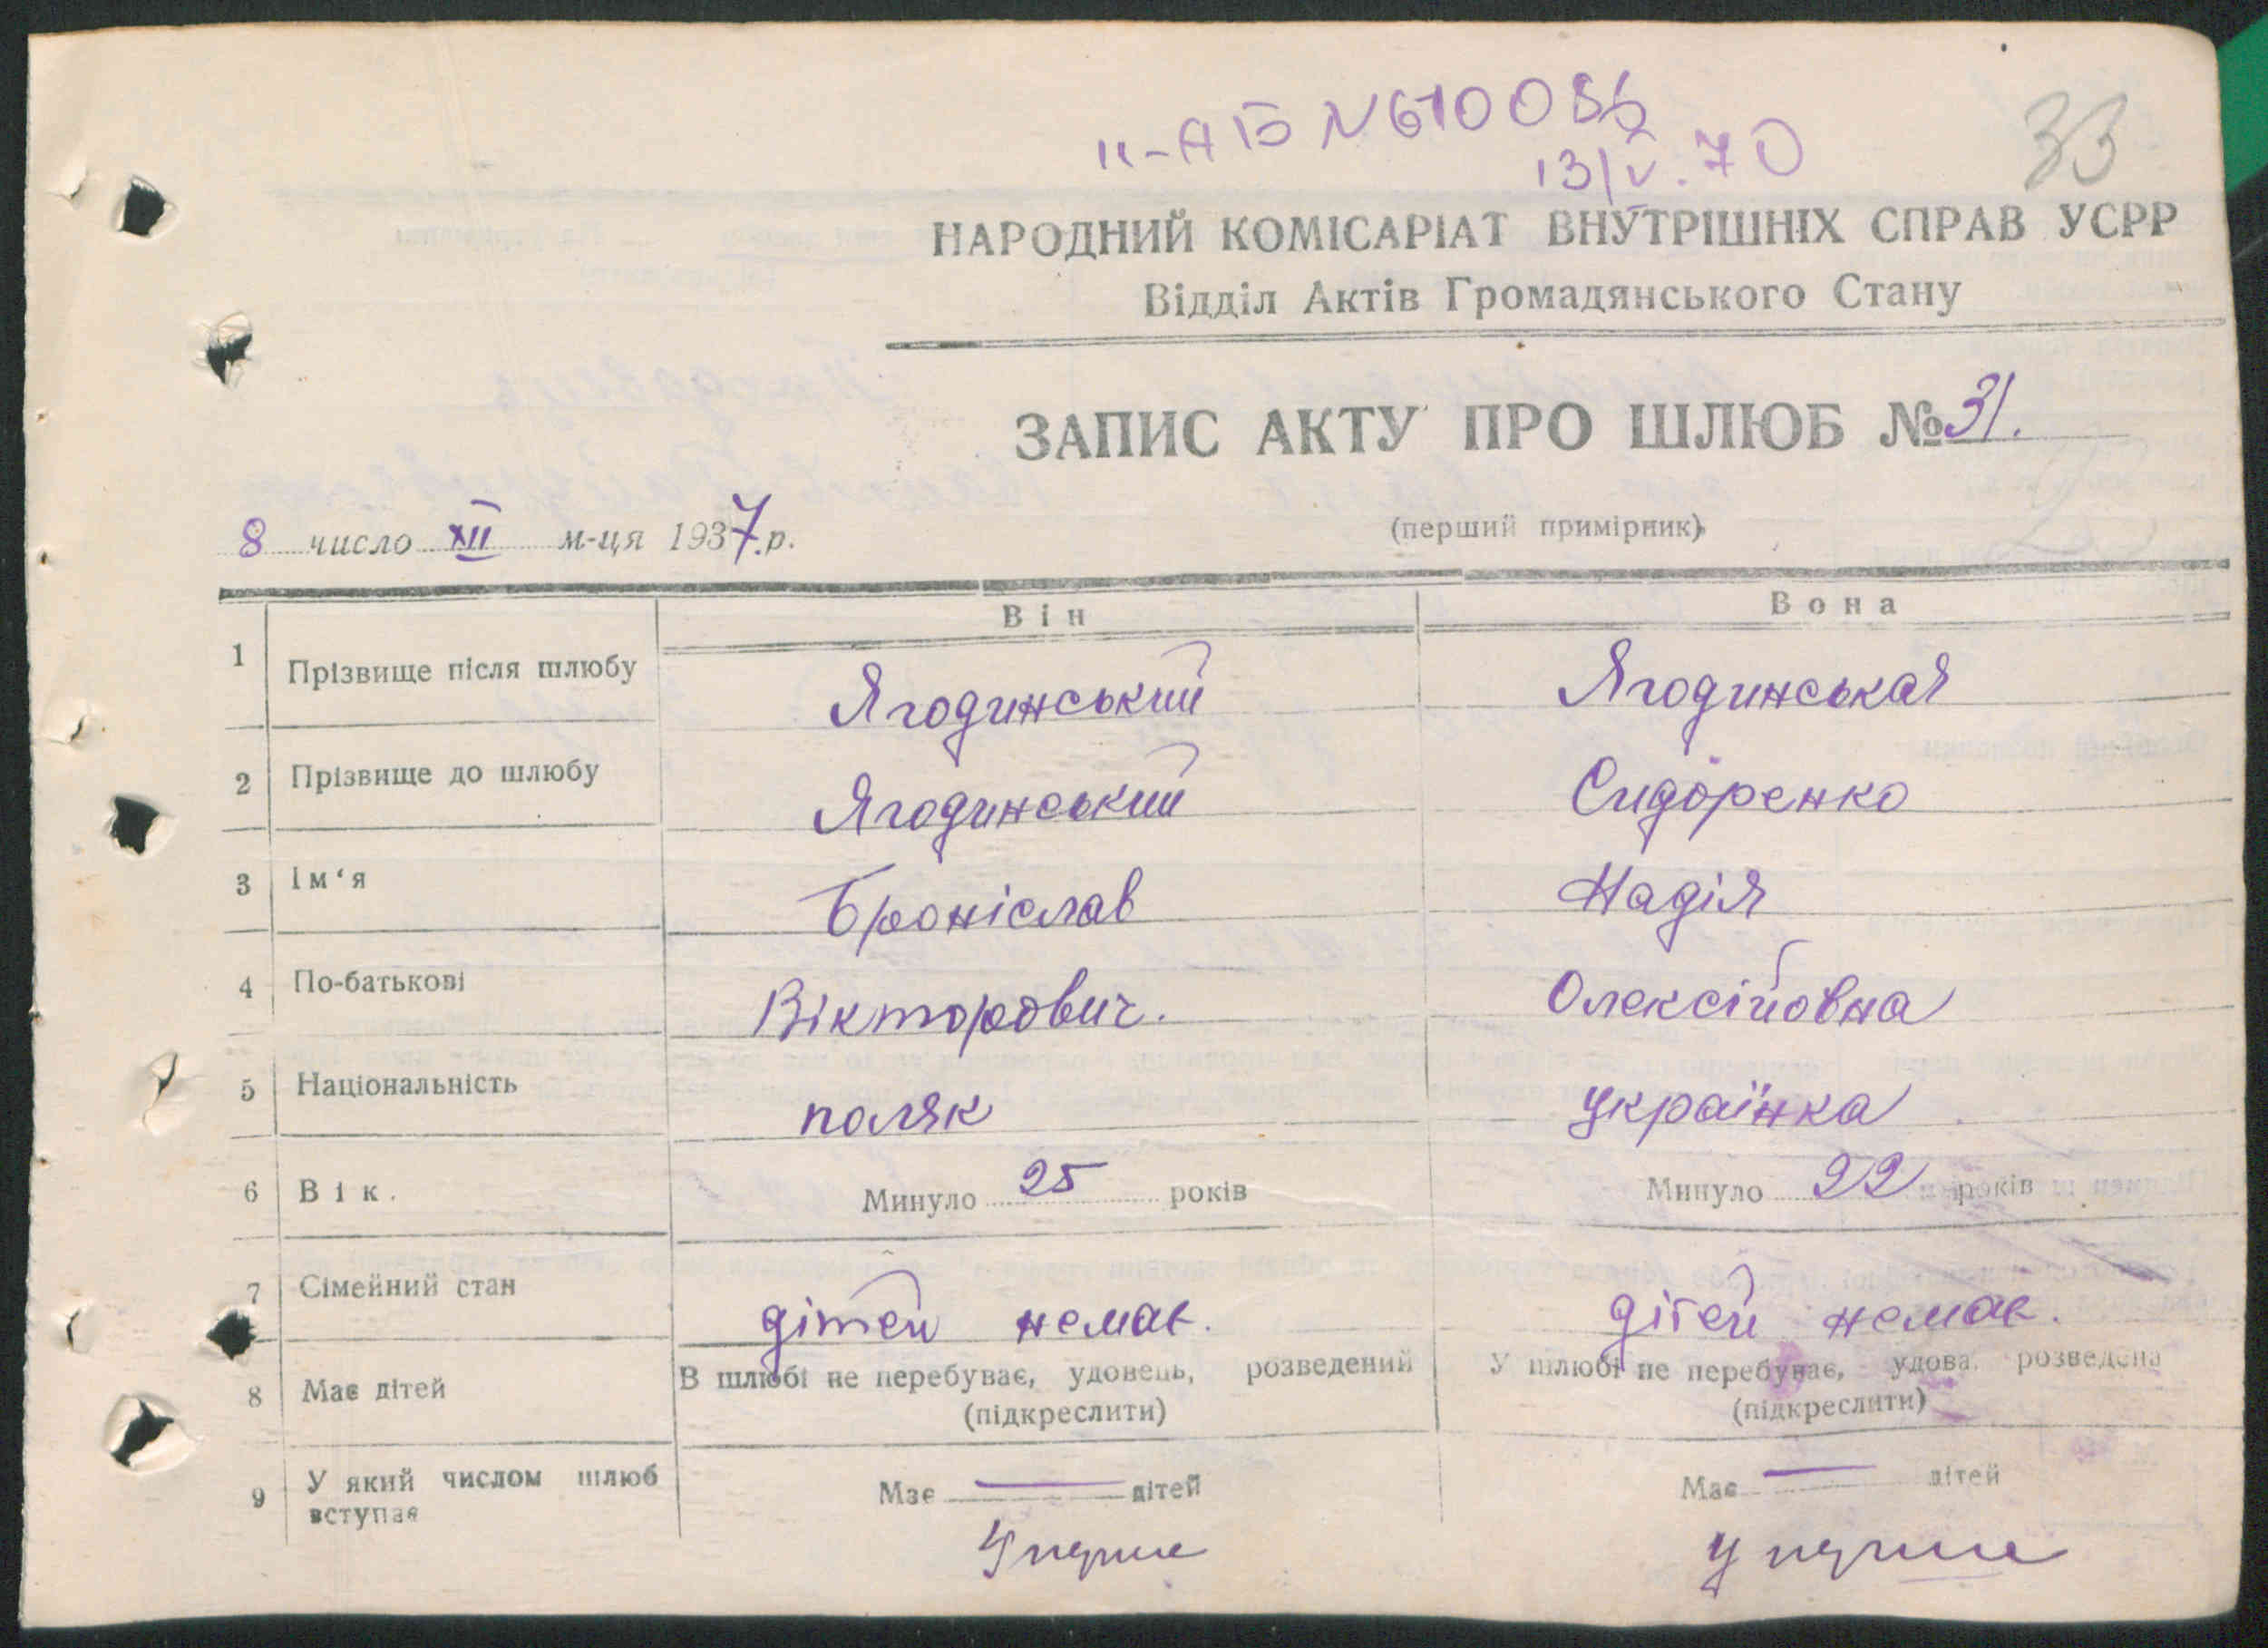 II-АБ N 610086
13/V.70
33
НАРОДНИЙ КОМІСАРІАТ ВНУТРІШНІХ СПРАВ УСРР
Відділ Актів Громадянського Стану
ЗАПИС АКТУ ПРО ШЛЮБ № 31.
8 число XII м-ця 1937.р.
(перший примірник)
Він Вона
1 Прізвище після шлюбу Ягодинський Ягодинськая
2 Прізвище до шлюбу Ягодинський Сидоренко
3 Ім‘я Броніслав Надія
4 По-батькові Вікторович. Олексійовна
5 Національність поляк українка
6 Вік. Минуло 25 років Минуло 22 років
7 Сімейний стан дітей немає. дітей немає.
8 Має дітей В шлюбі не перебуває, удовець, розведений У шлюбі не перебуває, удова. розведена
(підкреслити) (підкреслити)
9 У який числом шлюб вступає Має — дітей Має — дітей
Уперше Уперше